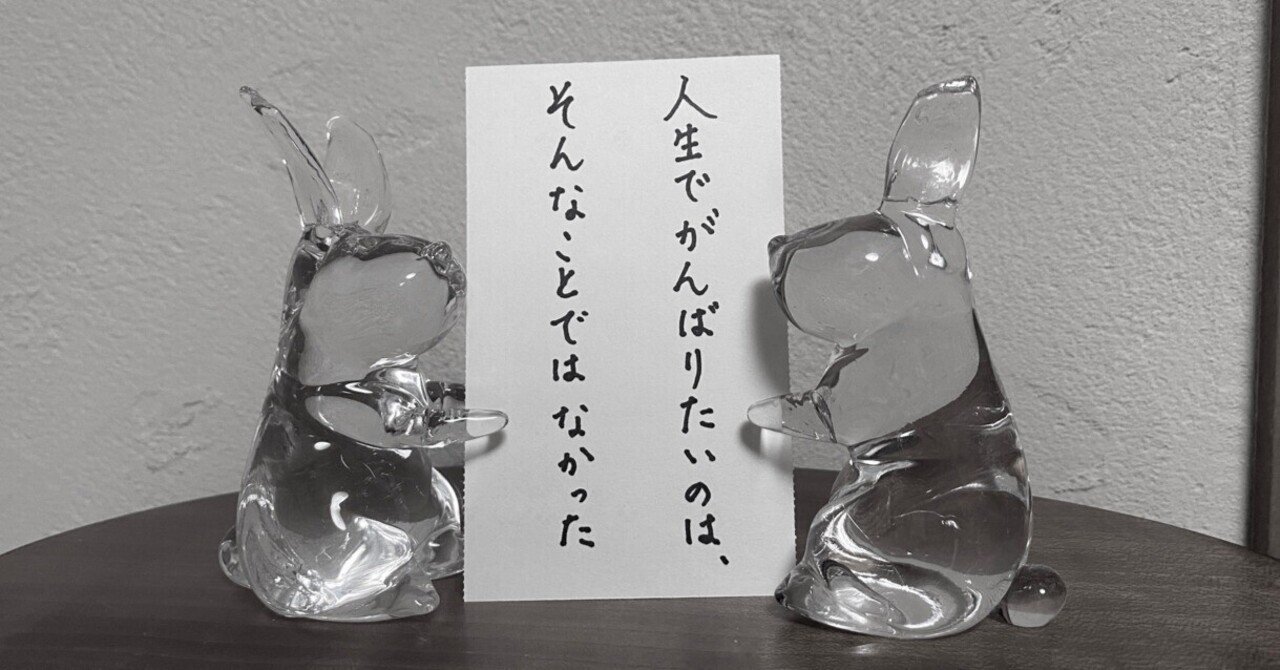 人生でがんばりたいのは、
そんなことではなかった